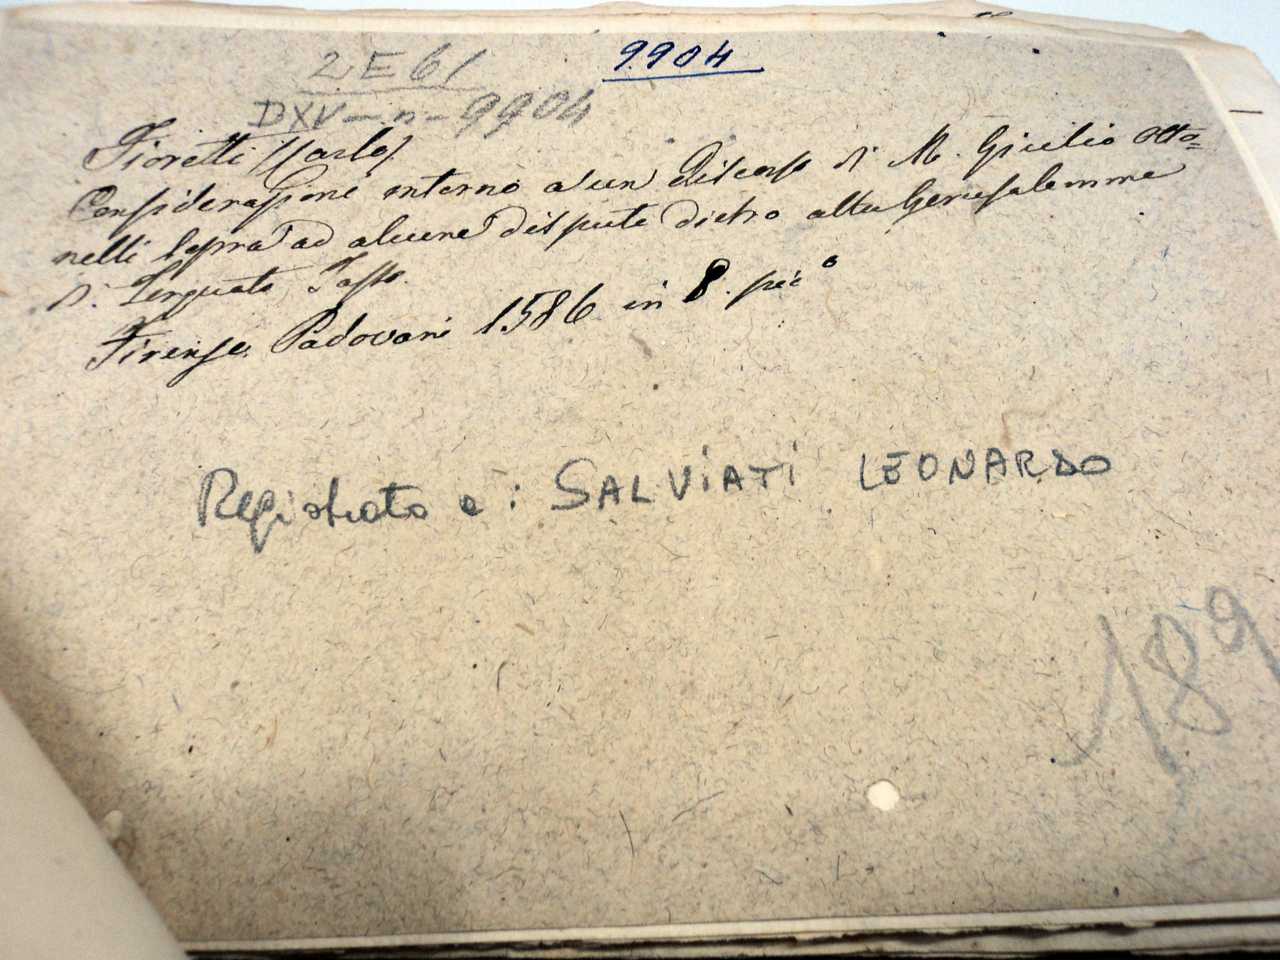 9904
2 E 61
DXV - n - 9904
Fioretti (Carlo)
Considerazioni intorno a un Discorso di M. Giulio Otto=
nelli sopra ad alcune dispute dietro alla Gerusalemme
di Torquato Tasso.
Firenze Padovani 1586 in 8. picº
Registrato a: SALViATi LEONARDO
189